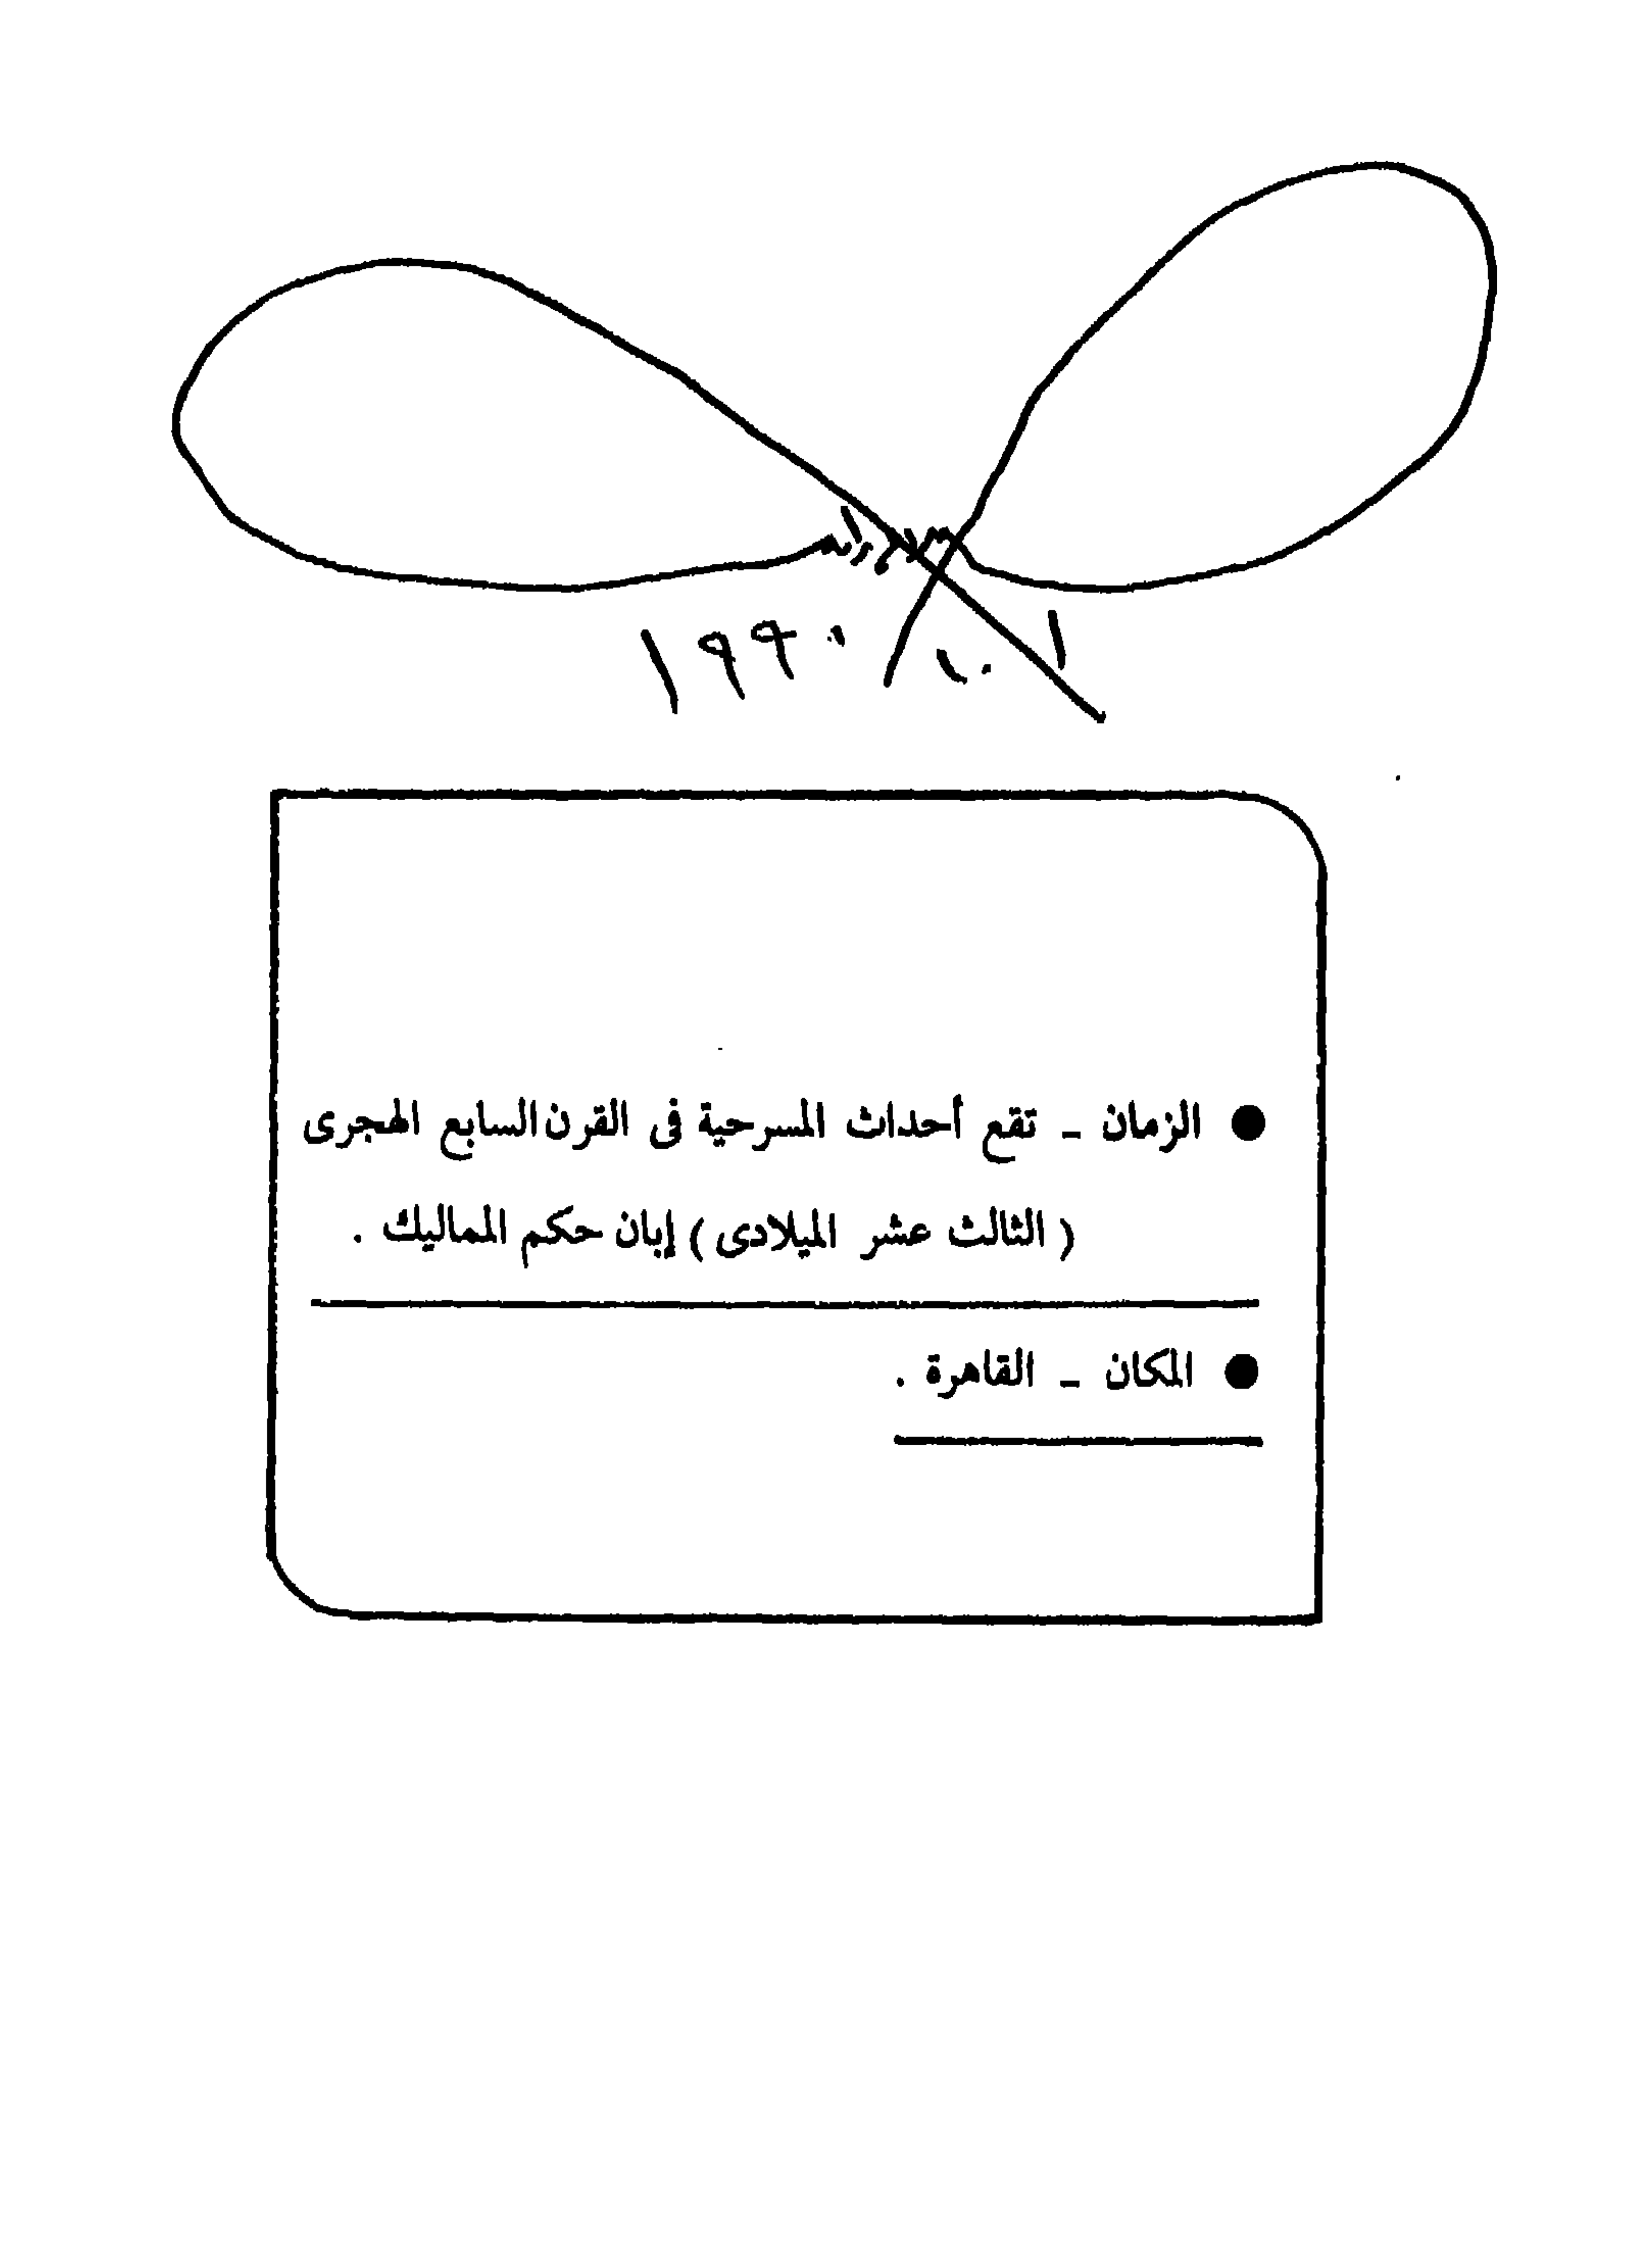 ١٩٩٠
● الزمان ـ تقع أحداث المسرحية فى القرن السابع الهجرى
( الثالث عشر الميلادى ) إبان حكم المماليك .
● المكان ـ القاهرة .